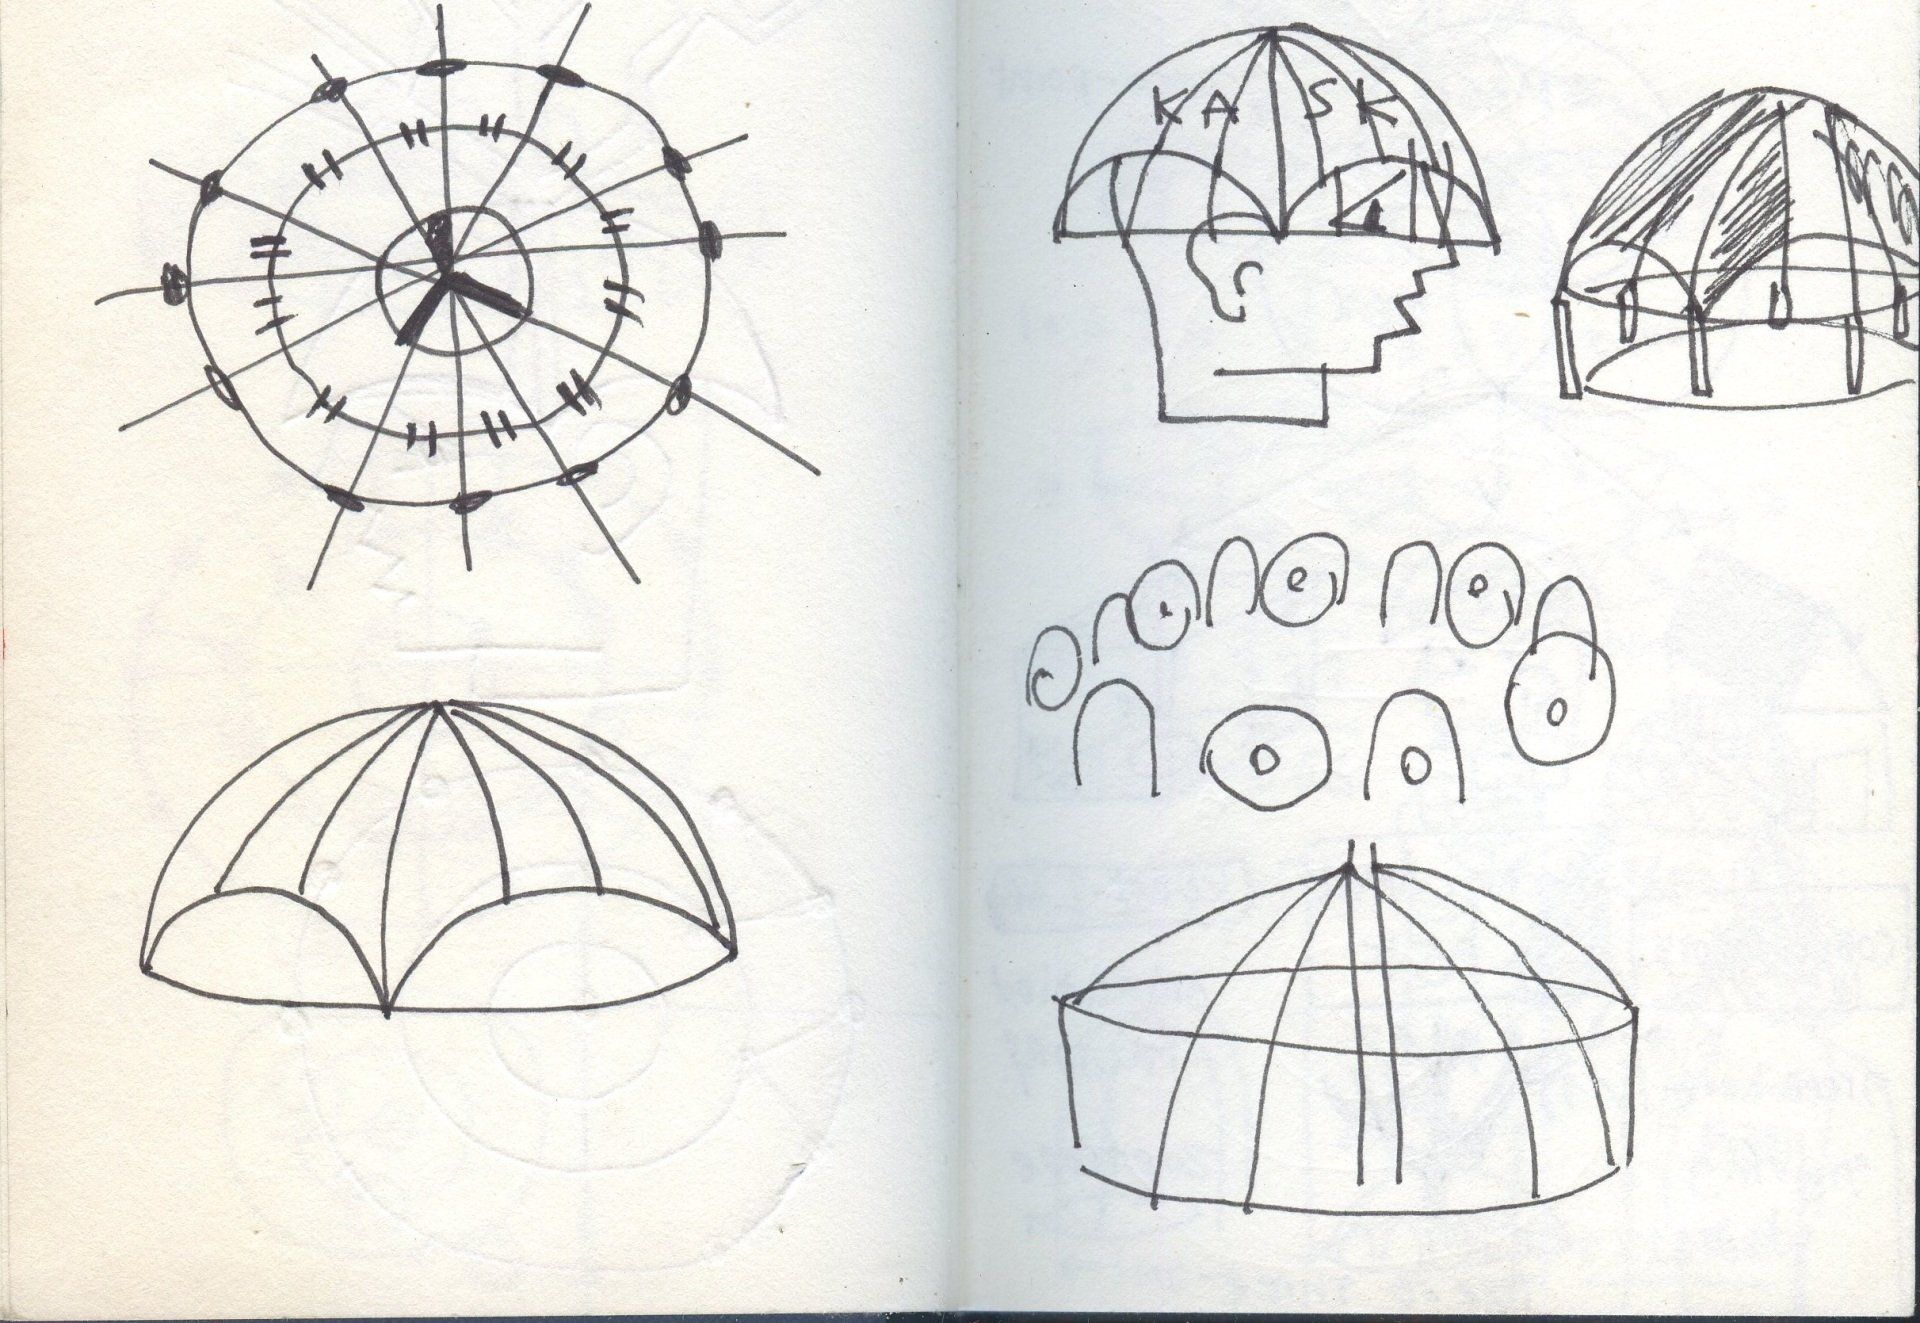 KA SK